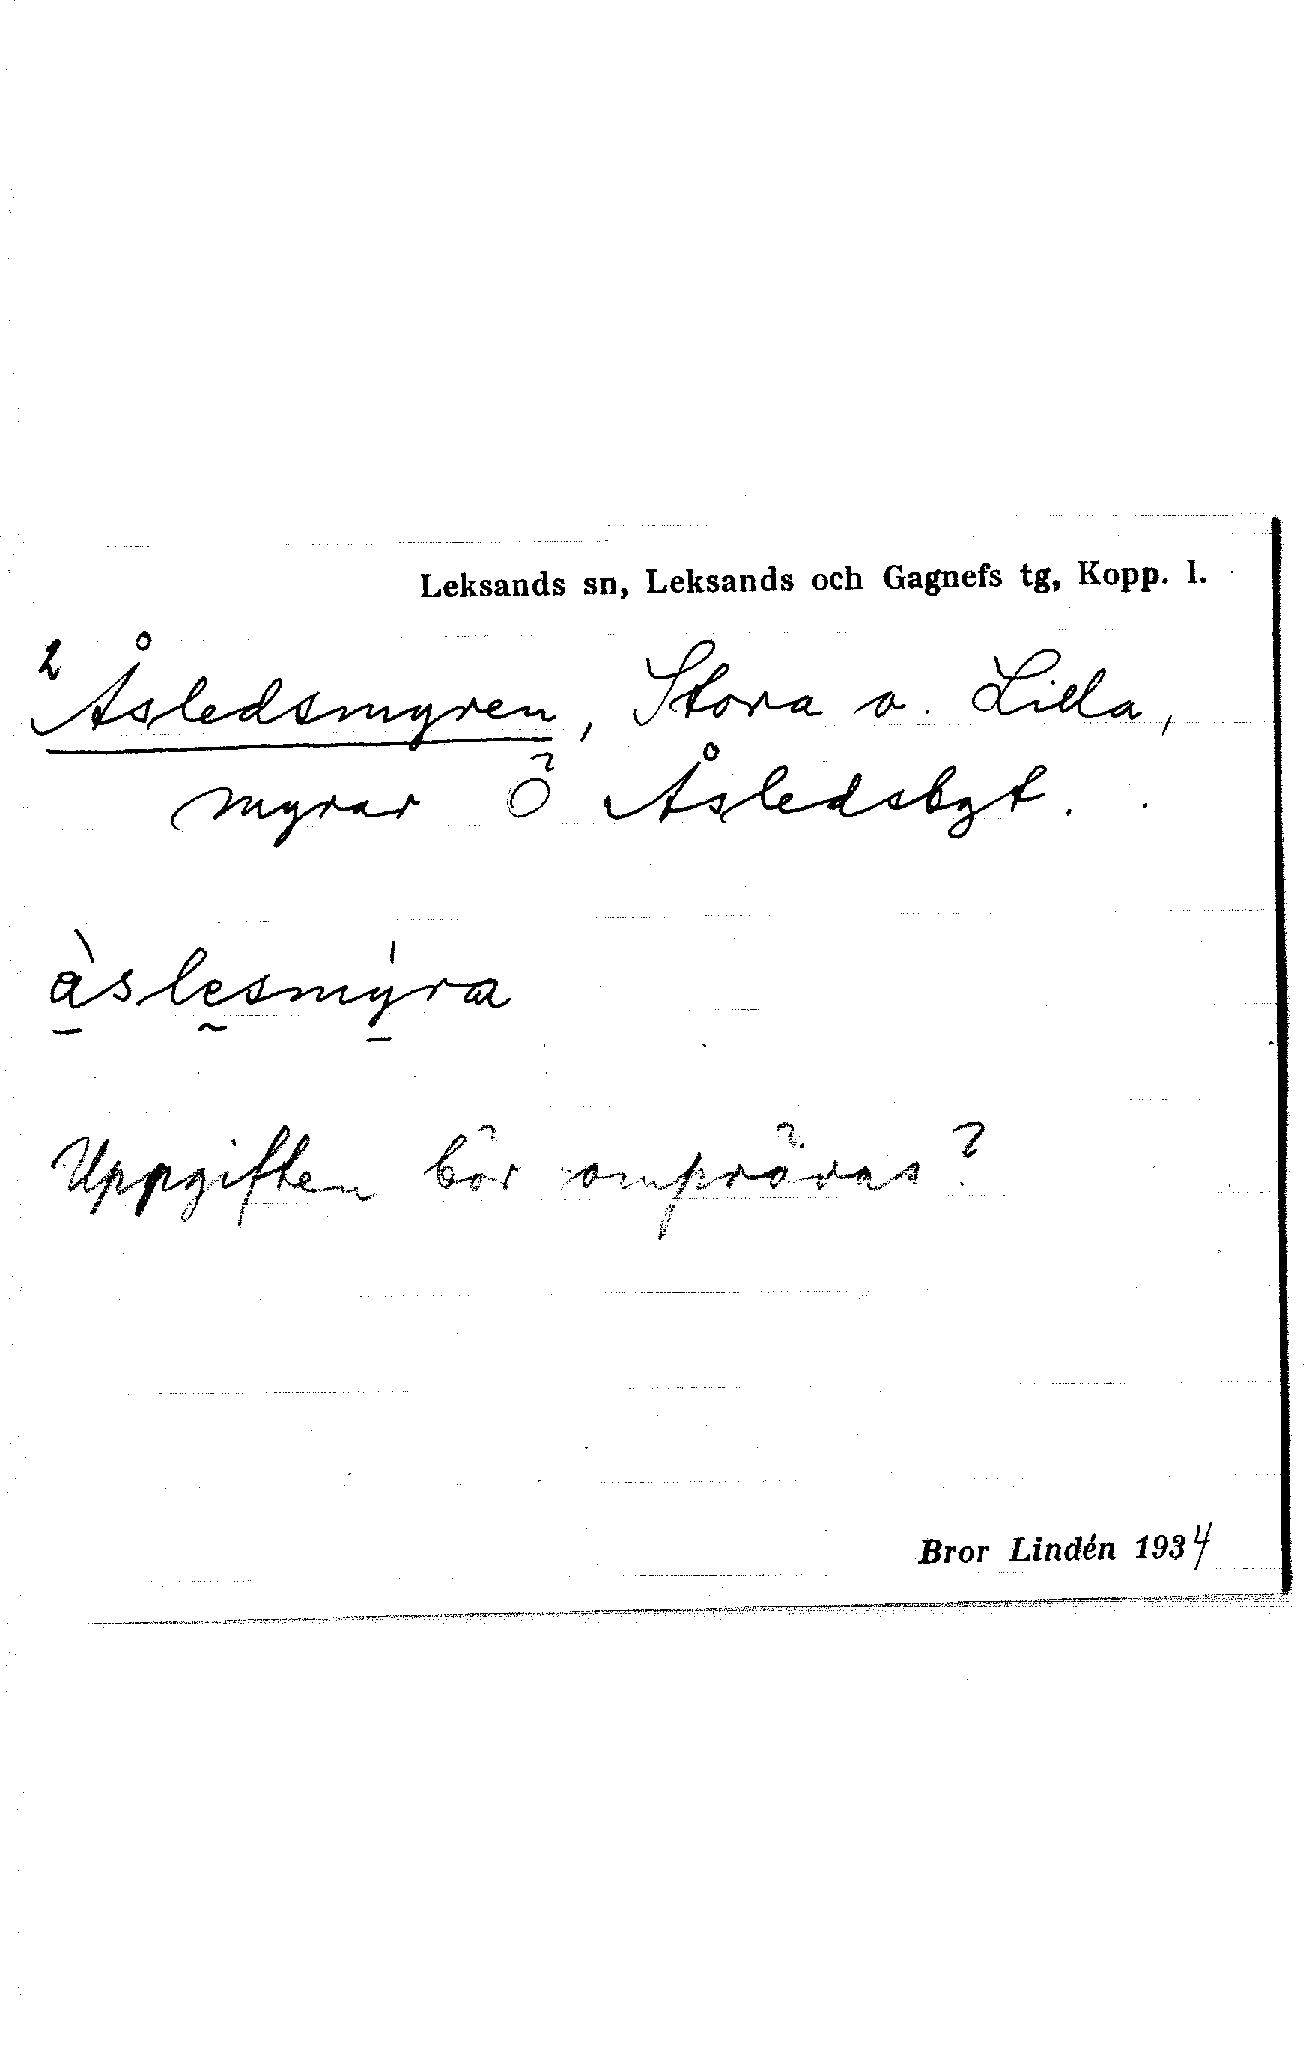 Leksands sn, Leksands och Gagnefs tg, Kopp. l.
2 Åsledsmyren, Stora o. Lilla,
myrar Ö Åsledsbgt.
àslesmýra
Uppgiften bör omprövas?
Bror Lindén 1934